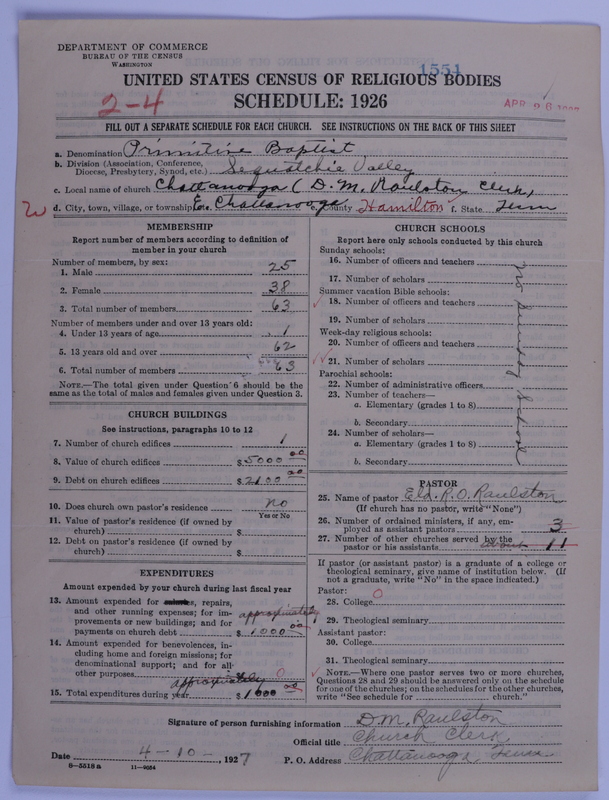 DEPARTMENT OF COMMERCE
BUREAU OF THE CENSUS
WASHINGTON
1554
UNITED STATES CENSUS OF RELIGIOUS BODIES
2-4
SCHEDULE: 1926
FILL OUT A SEPARATE SCHEDULE FOR EACH CHURCH. SEE INSTRUCTIONS ON THE BACK OF THIS SHEET
a. Denomination Primitive Baptist
b. Division (Association, Conference, Diocese, Presbytery, Synod, etc.) Sequatchie Valley
c. Local name of church Chattanooga (D. M. Raulston, Clerk,
d. City, town, village, or township E. Chattanooga County Hamilton f. State Tenn
MEMBERSHIP
Report number of members according to definition of member in your church
Number of members, by sex:
1. Male 25
2. Female 38
3. Total number of members 63
Number of members under and over 13 years old:
4. Under 13 years of age 1
5. 13 years old and over 62
6. Total number of members 63
NOTE.—The total given under Question 6 should be the same as the total of males and females given under Question 3.
CHURCH BUILDINGS
See instructions, paragraphs 10 to 12
7. Number of church edifices 1
8. Value of church edifices $5000 00
9. Debt on church edifices $2100 00
10. Does church own pastor's residence? no
Yes or No
11. Value of pastor's residence (if owned by church) $
12. Debt on pastor's residence (if owned by church) $
EXPENDITURES
Amount expended by your church during last fiscal year
13. Amount expended for salaries, repairs, and other running expenses; for improvements or new buildings; and for payments on church debt approximately $1000 00
14. Amount expended for benevolences, including home and foreign missions; for denominational support; and for all other purposes 0
15. Total expenditures during year approximately $1000 00
CHURCH SCHOOLS
Report here only schools conducted by this church
Sunday schools:
16. Number of officers and teachers
17. Number of scholars
Summer vacation Bible schools:
18. Number of officers and teachers
19. Number of scholars
Week-day religious schools:
20. Number of officers and teachers
21. Number of scholars
Parochial schools:
22. Number of administrative officers
23. Number of teachers—
a. Elementary (grades 1 to 8)
b. Secondary
24. Number of scholars—
a. Elementary (grades 1 to 8)
b. Secondary
No Sunday School
PASTOR
25. Name of pastor Eld. R. O. Raulston
(If church has no pastor, write "None")
26. Number of ordained ministers, if any, employed as assistant pastors 3
27. Number of other churches served by the pastor or his assistants about 11
If pastor (or assistant pastor) is a graduate of a college or theological seminary, give name of institution below. (If not a graduate, write "No" in the space indicated.)
Pastor:
28. College 0
29. Theological seminary
Assistant pastor:
30. College
31. Theological seminary
NOTE.—Where one pastor serves two or more churches, Questions 28 and 29 should be answered only on the schedule for one of the churches; on the schedules for the other churches, write "See schedule for church."
Signature of person furnishing information D. M. Raulston
Official title Church Clerk,
Date 4-10-, 1927 P. O. Address Chattanooga, Tenn.
8-5518 a 11-9054